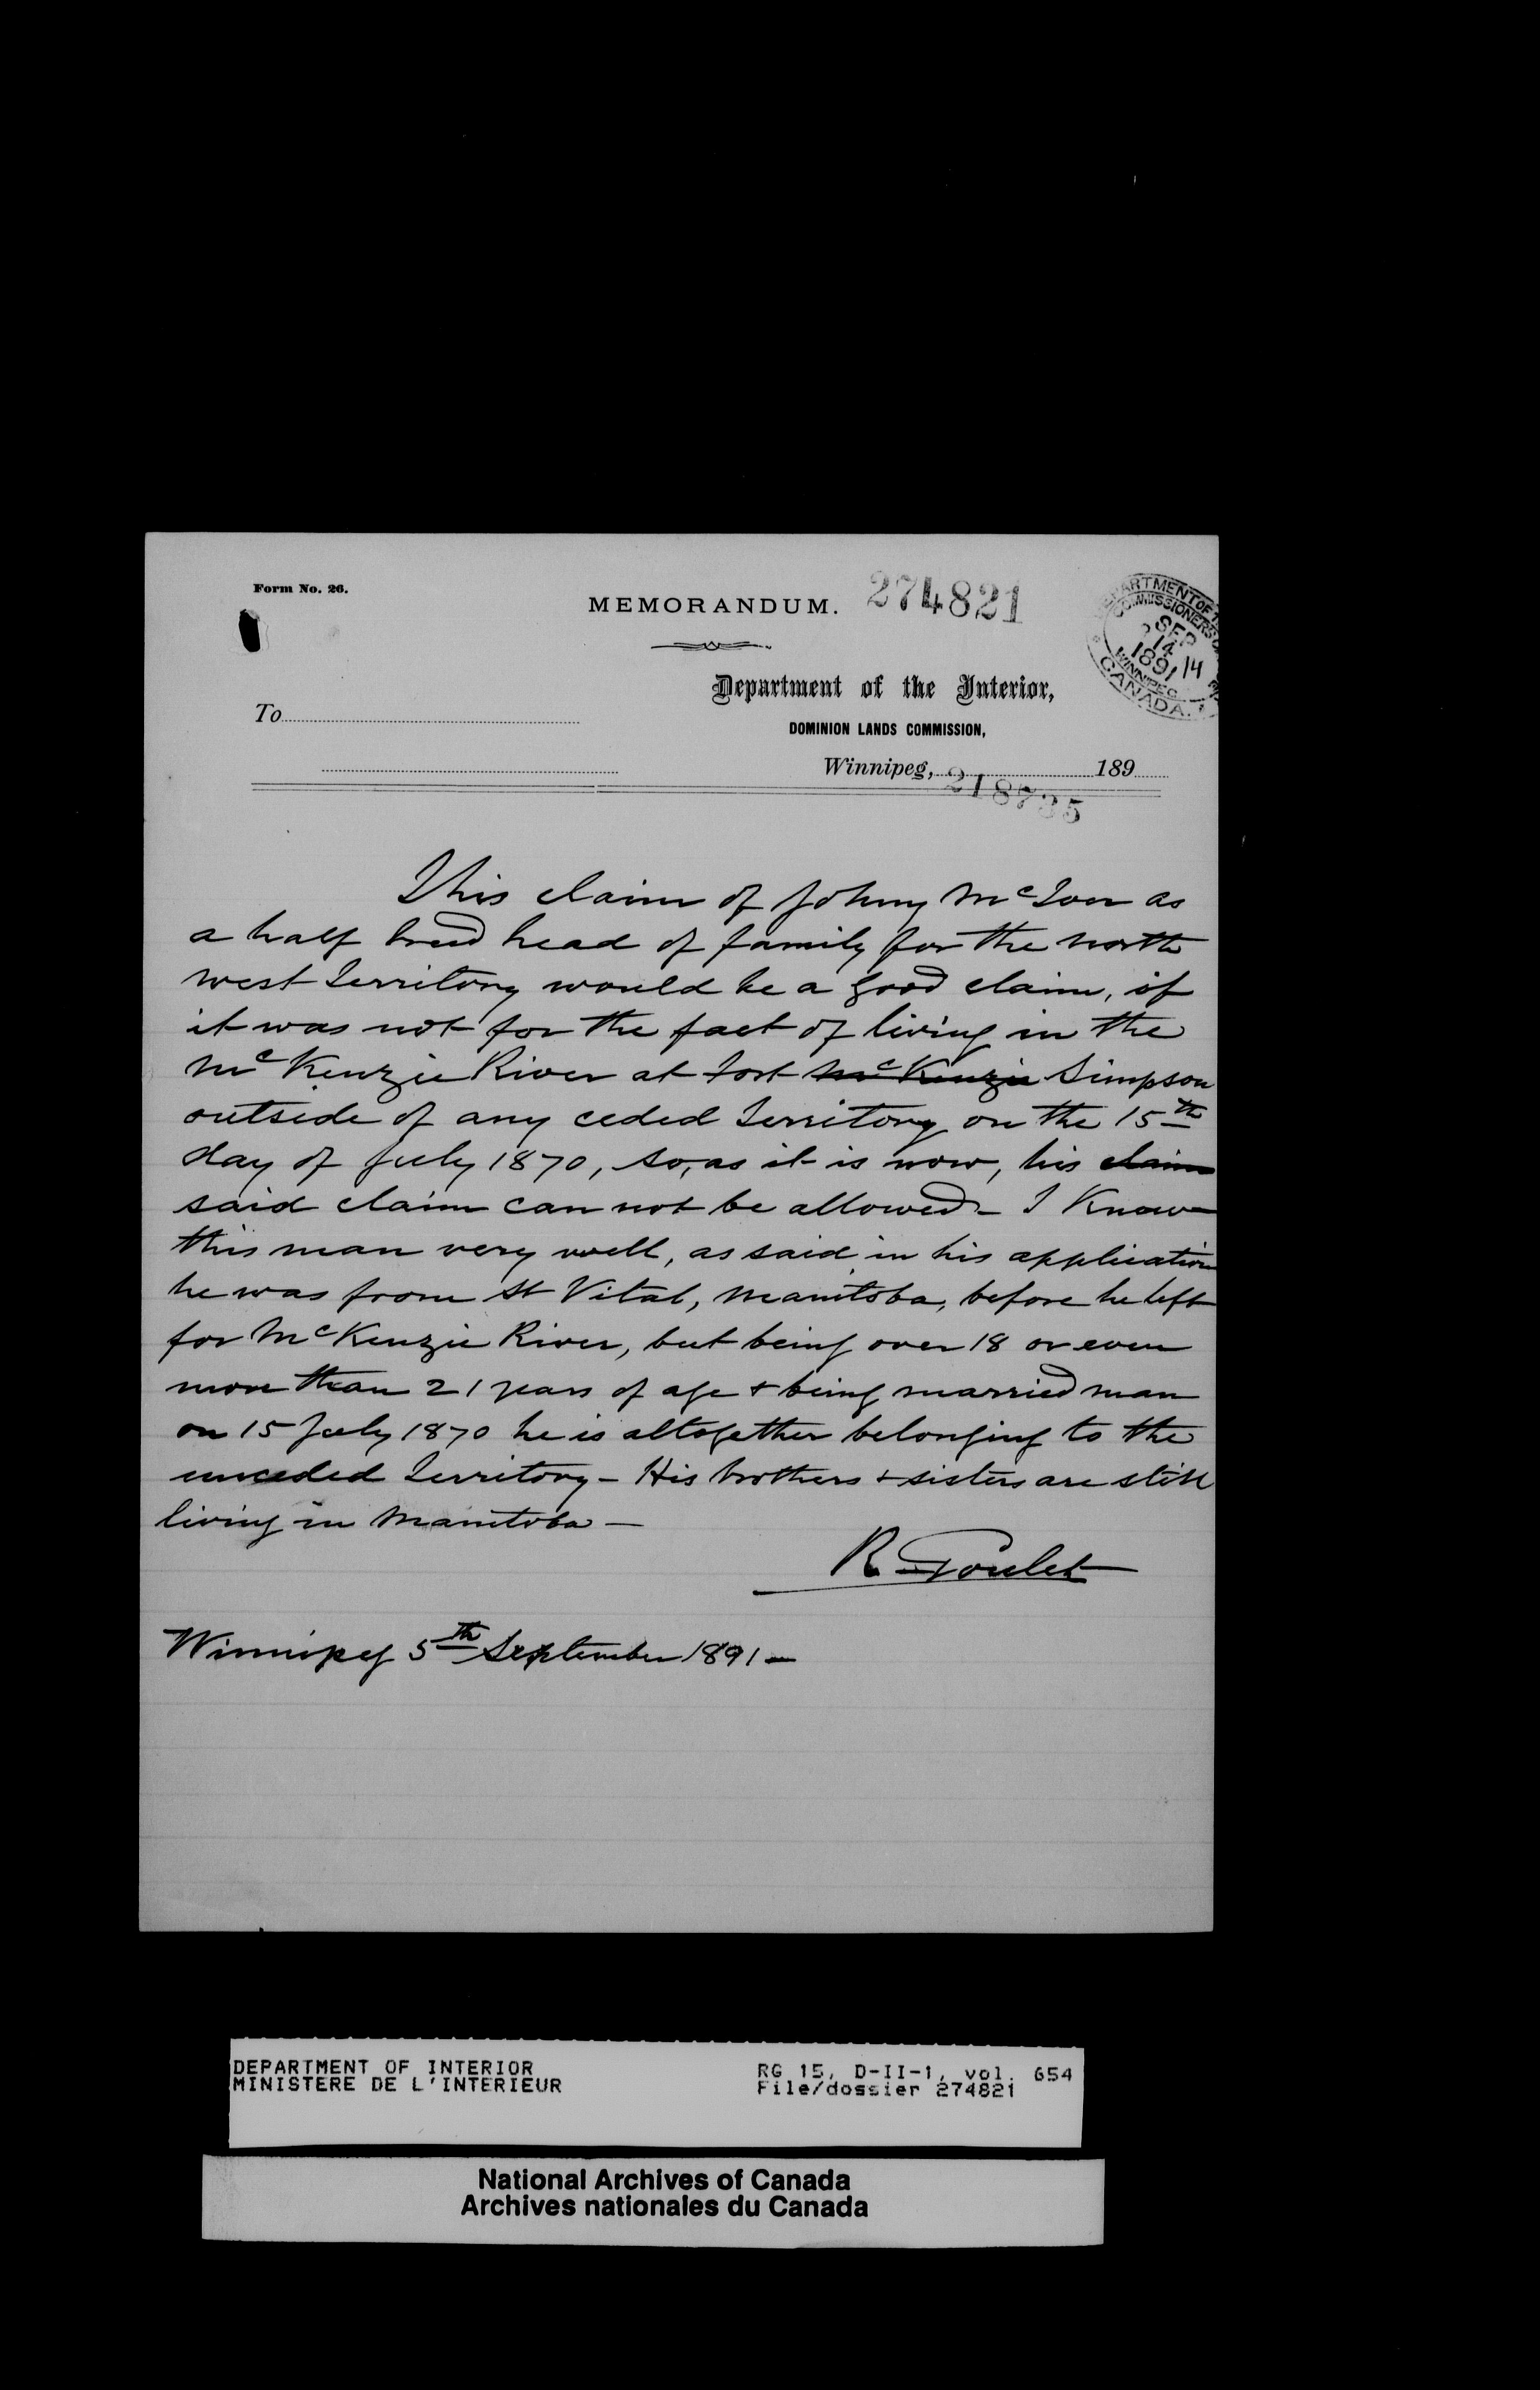 Form No. 26.
MEMORANDUM. 274821
DEPARTMENT OF
COMMISSIONERS
SEP
14
1891
14
WINNIPEG
CANADA.
Department of the Interior,
To
DOMINION LANDS COMMISSION,
Winnipeg, 189
218735
This claim of Johny as
a half breed head of family for the north
west Territory would be a good claim, if
it was not for the fact of living in the
McKenzie River at Fort McKenzie Simpson
outside of any ceded Territory on the 15th
day of July 1870, so, as it is now, his claim
said claim can not be allowed - I Know
this man very well, as said in his application
he was from St Vital, Manitoba, before he left
for McKenzie River, but being over 18 or even
more than 21 years of age & being married man
on 15 July 1870 he is altogether belonging to the
unceded Territory - His brothers & sisters are still
living in Manitoba -
R Goulet
Winnipeg 5th September 1891 -
DEPARTMENT OF INTERIOR RG 15, D-II-1, vol. 654
MINISTERE DE L'INTERIEUR File/dossier 274821
National Archives of Canada
Archives nationales du Canada